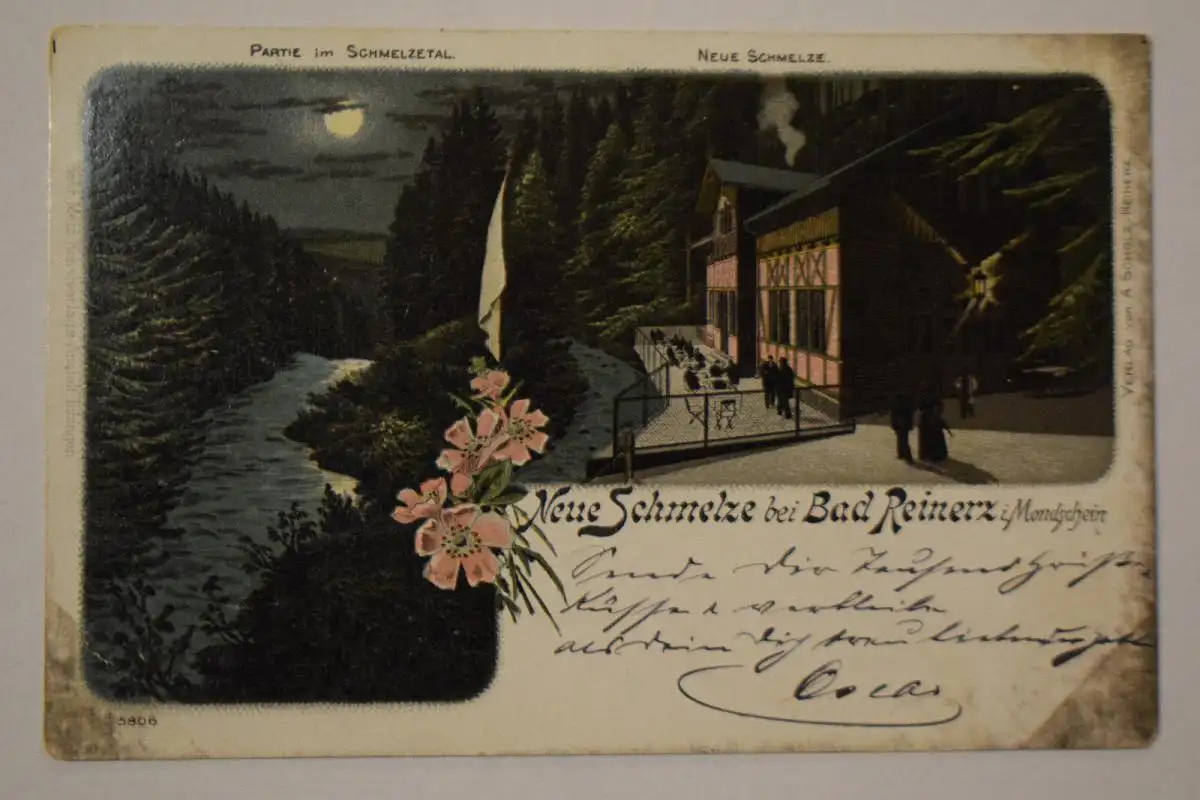 PARTIE im SCHMELZETAL.
NEUE SCHMELZE.
VERLAG VON A SCHOLZ, REINERZ
Neue Schmelze bei Bad Reinerz i. Mondschein
Sende Dir Tausend
Küsse & verbleibe
als dein Dich treu
Oscar
5806